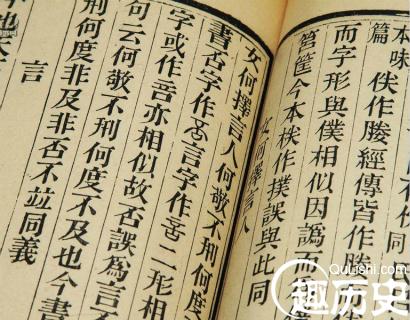 本味
篇佚作媵經傳皆作
而字形與僕相似因譌而
筥筐今本佚作撲誤與此同
女何擇言人
女何擇言人何敬不刑何度
書古字作言字作二形相
字或作亦相似故否誤為言
句云何敬不刑何度不及也今書
刑何度非及非否不竝同義
言
也
趣历史
QuLishi.com